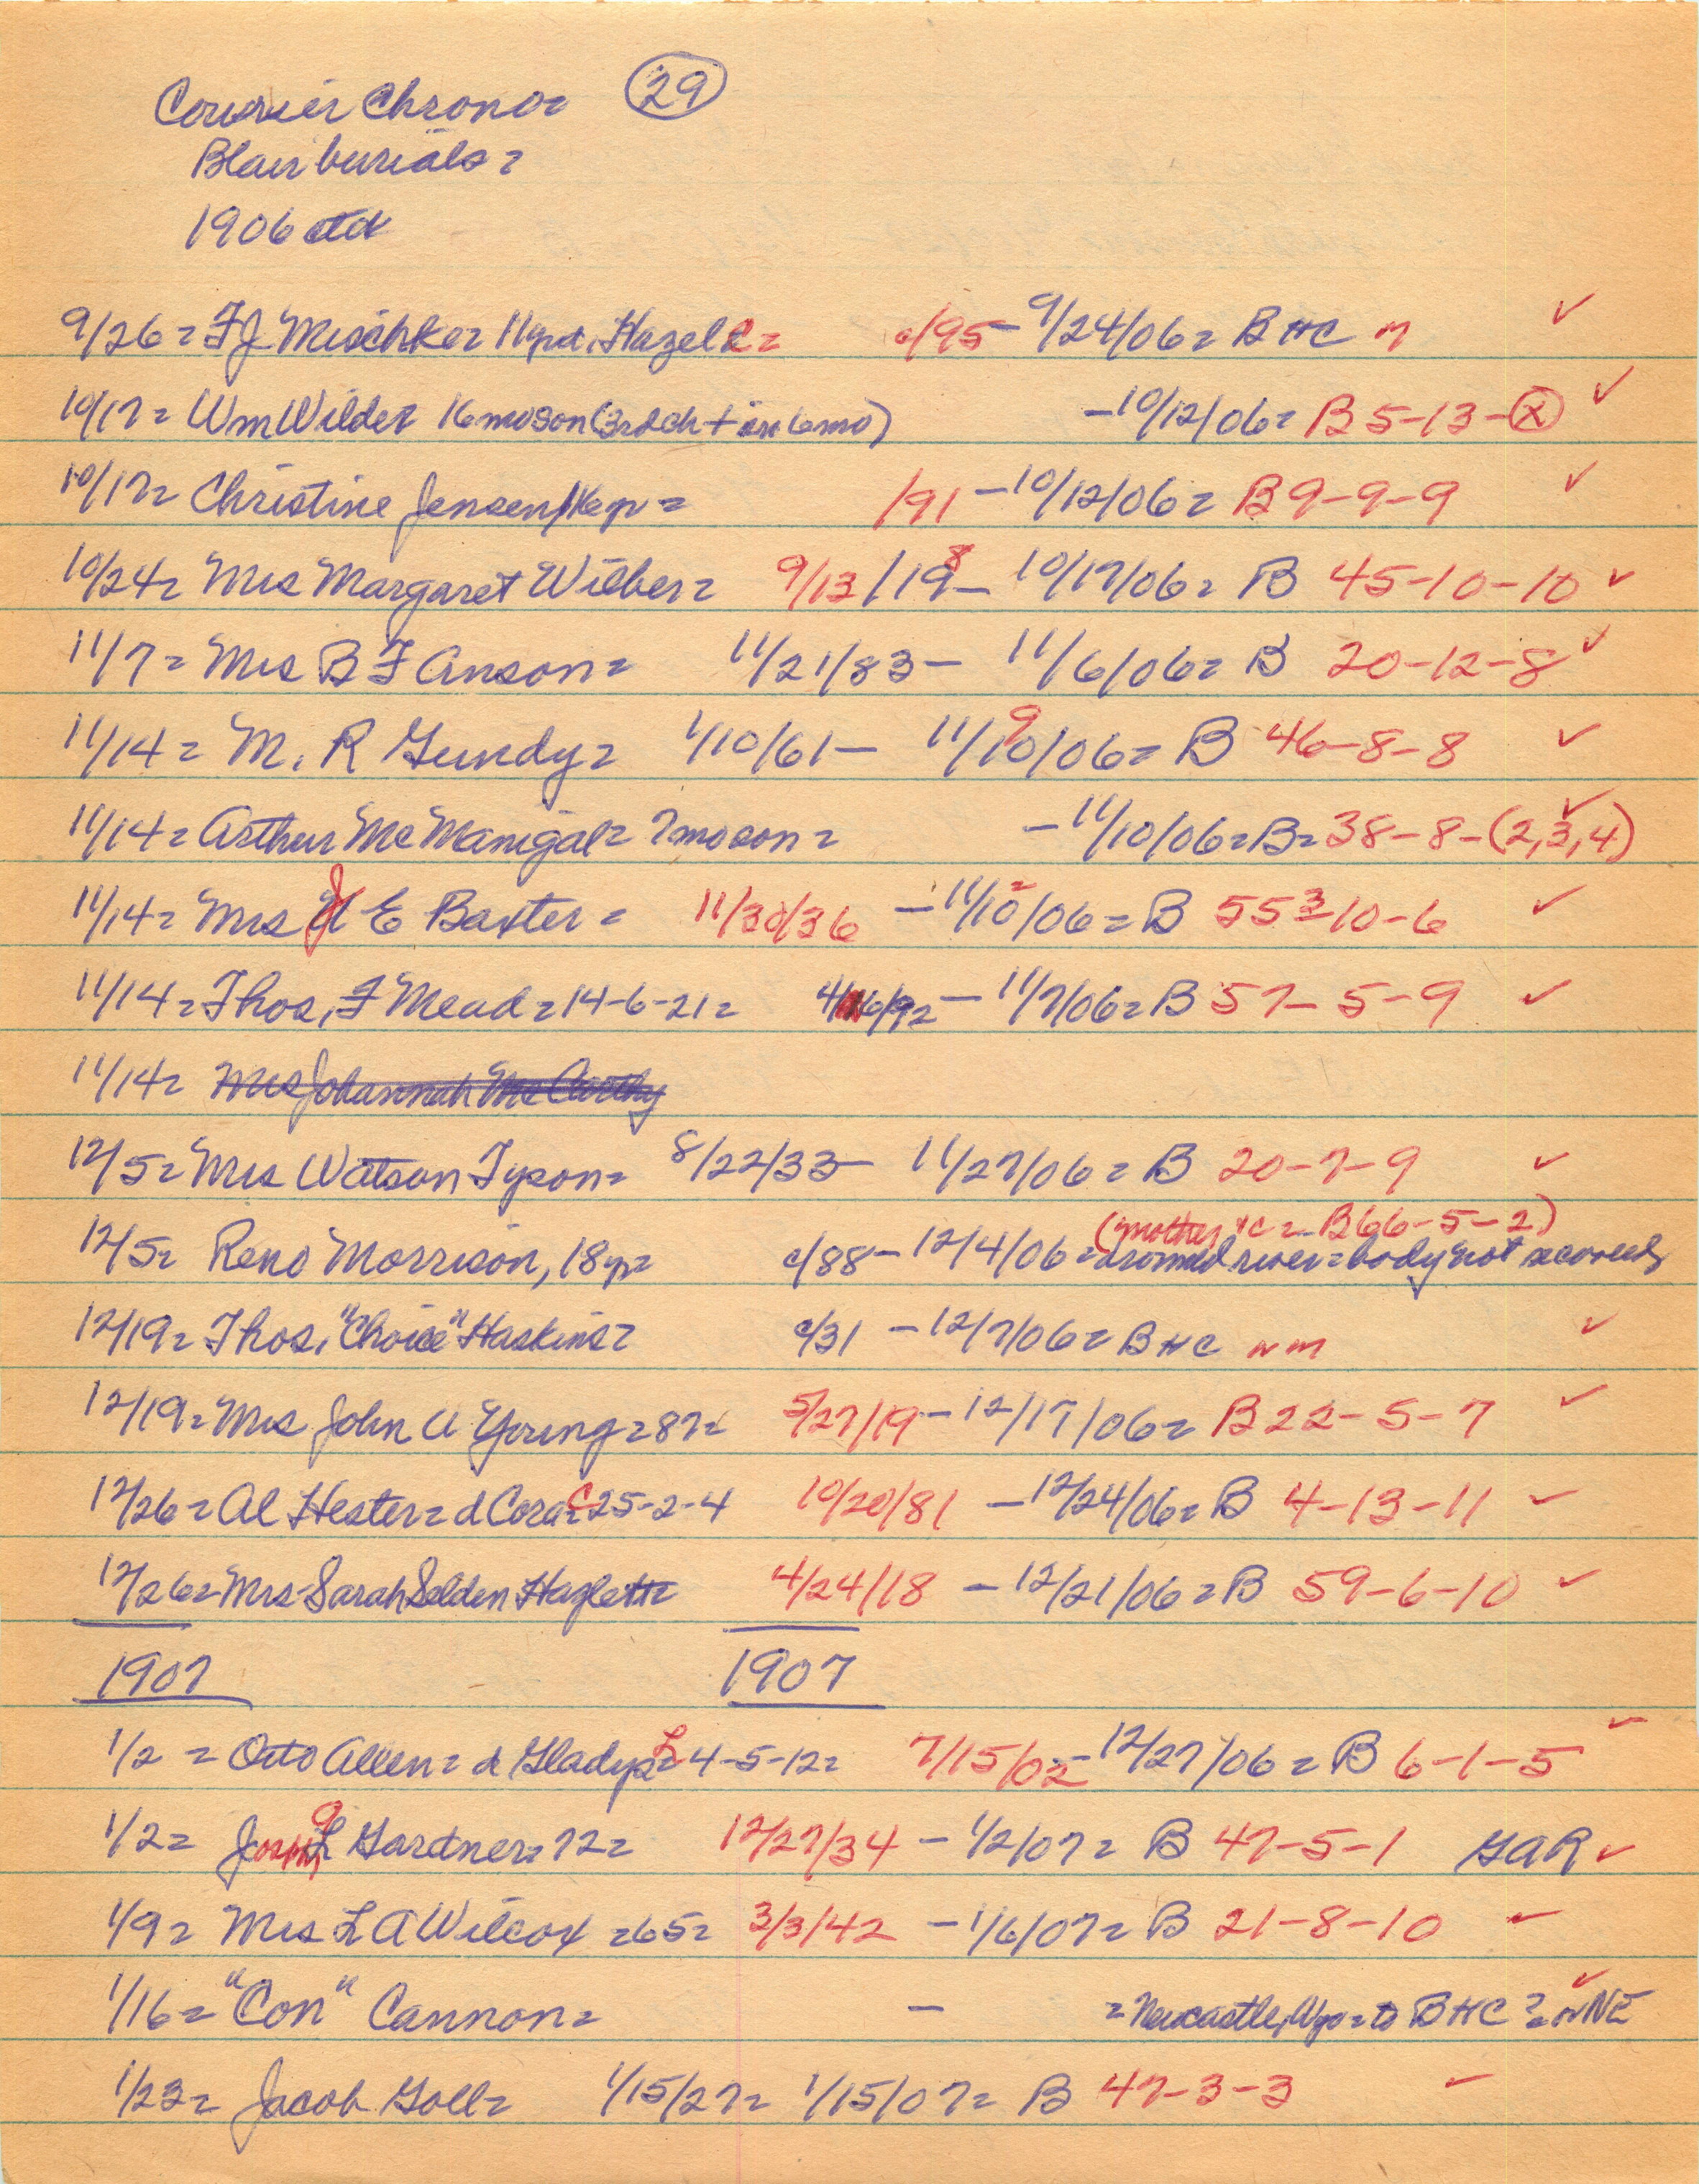 Courier Chrono= (29)
Blair burials=
1906 ctd
9/26= FJ Mischke= 11yrd, Hazel E= c/95 - 9/24/06= B HC M ✓
10/17= Wm Wilder 16 mo son (3rd ch + in 6 mo) - 10/12/06= B 5-13-(X) ✓
10/17= Christine Jensen, 16y= /91 - 10/12/06= B 9-9-9 ✓
10/24= Mrs Margaret Wilber= 9/13/19 8 - 10/17/06= B 45-10-10 ✓
11/7= Mrs B F Anson= 11/21/83 - 11/6/06= B 20-12-8 ✓
11/14= M. R Gundy= 1/10/61 - 11/10 9/06= B 46-8-8 ✓
11/14= Arthur McManigal= 7mo son= - 11/10/06= B= 38-8-(2,3,4) ✓
11/14= Mrs J E Baxter= 11/30/36 - 11/10/06= B 55 3-10-6 ✓
11/14= Thos, F Mead= 14-6-21= 4/16/92 - 11/7/06= B 57-5-9 ✓
11/14= Mrs Johannah McCarthy
12/5= Mrs Watson Tyson= 8/22/33 - 11/27/06= B 20-7-9 ✓
(mother &c= B66-5-2)
12/5= Reno Morrison, 18y= c/88 - 12/4/06= drowned river= body not recovered
12/19= Thos, "Choice" Haskins= c/31 - 12/7/06= B HC nm ✓
12/19= Mrs John A Young= 87= 5/27/19 - 12/17/06= B 22-5-7 ✓
12/26= Al Hester= d Cora C= 25-2-4 10/20/81 - 12/24/06= B 4-13-11 ✓
12/26= Mrs Sarah Selden Hazlett= 4/24/18 - 12/21/06= B 59-6-10 ✓
1907 1907
1/2= Otto Allen= d Gladys L= 4-5-12= 7/15/02 - 12/27/06= B 6-1-5 ✓
1/2= Joseph L Gardner= 72= 12/27/34 - 1/2/07= B 47-5-1 GAR ✓
1/9= Mrs L A Wilcox= 65= 3/3/42 - 1/6/07= B 21-8-10 ✓
1/16= "Con" Cannon= - = Newcastle, Wyo= to BHC?= n NE ✓
1/23= Jacob Goll= 1/15/27= 1/15/07= B 47-3-3 ✓